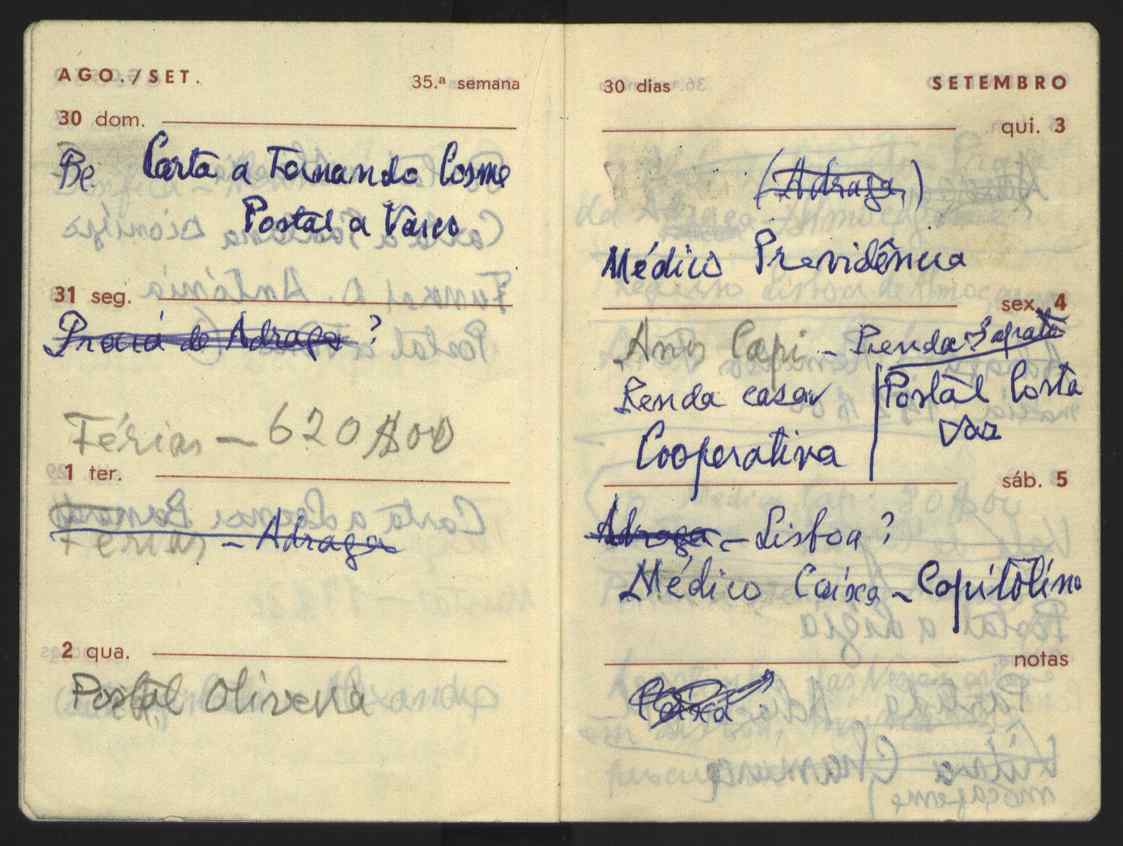 AGO./SET. 35.ª semana
30 dom.
Be. Carta a Fernando Cosme
Postal a Vasco
31 seg.
Praia de Adraga ?
Férias – 620$00
1 ter.
Férias – Adraga
2 qua.
Postal Oliveira
30 dias SETEMBRO
qui. 3
(Adraga)
Médico Previdência
sex. 4
Anos Capi – Prenda Sapato
Renda casa Postal Costa
Cooperativa Vaz
sáb. 5
Adraga – Lisboa ?
Médico Caixa – Capitolino
notas